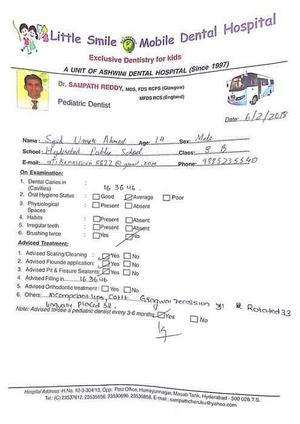 Little Smile Mobile Dental Hospital
Exclusive Dentistry for kids
A UNIT OF ASHWINI DENTAL HOSPITAL (Since 1997)
Dr. SAMPATH REDDY, MDS, FDS RCPS (Glasgow)
MFDS RCS (England)
Pediatric Dentist
Date: 6/2/2018
Name: Syed Ahmed Age: 14 Sex: Male
School: Hyderabad Public School Class: 8 B
E-mail: Phone:
On Examination:
1. Dental Caries in (Cavities) : 16 36 46
2. Oral Hygiene Status : Good Average Poor
3. Physiological Spaces : Present Absent
4. Habits : Present Absent
5. Irregular teeth : Present Absent
6. Brushing twice : Yes No
Adviced Treatment:
1. Advised Scaling/Cleaning : Yes No
2. Advised Flouride application: Yes No
3. Advised Pit & Fissure Sealants: Yes No
4. Advised Filling in 16 36 46
5. Advised Orthodontic treatment : Yes No
6. Others: Incompetent lips, Gingival recession 31 Rotated 33
lingually placed 32.
Note: Advised to see a pediatric dentist every 3-6 months Yes No
Hospital Address: H.No. 10-3-304/13, Opp: Post Office, Humayunnagar, Masab Tank, Hyderabad - 500 028 T.S.
Tel: (C) 23537612, 23535656, 23590690, 23835858, E-mail: sampathcheruku@yahoo.com